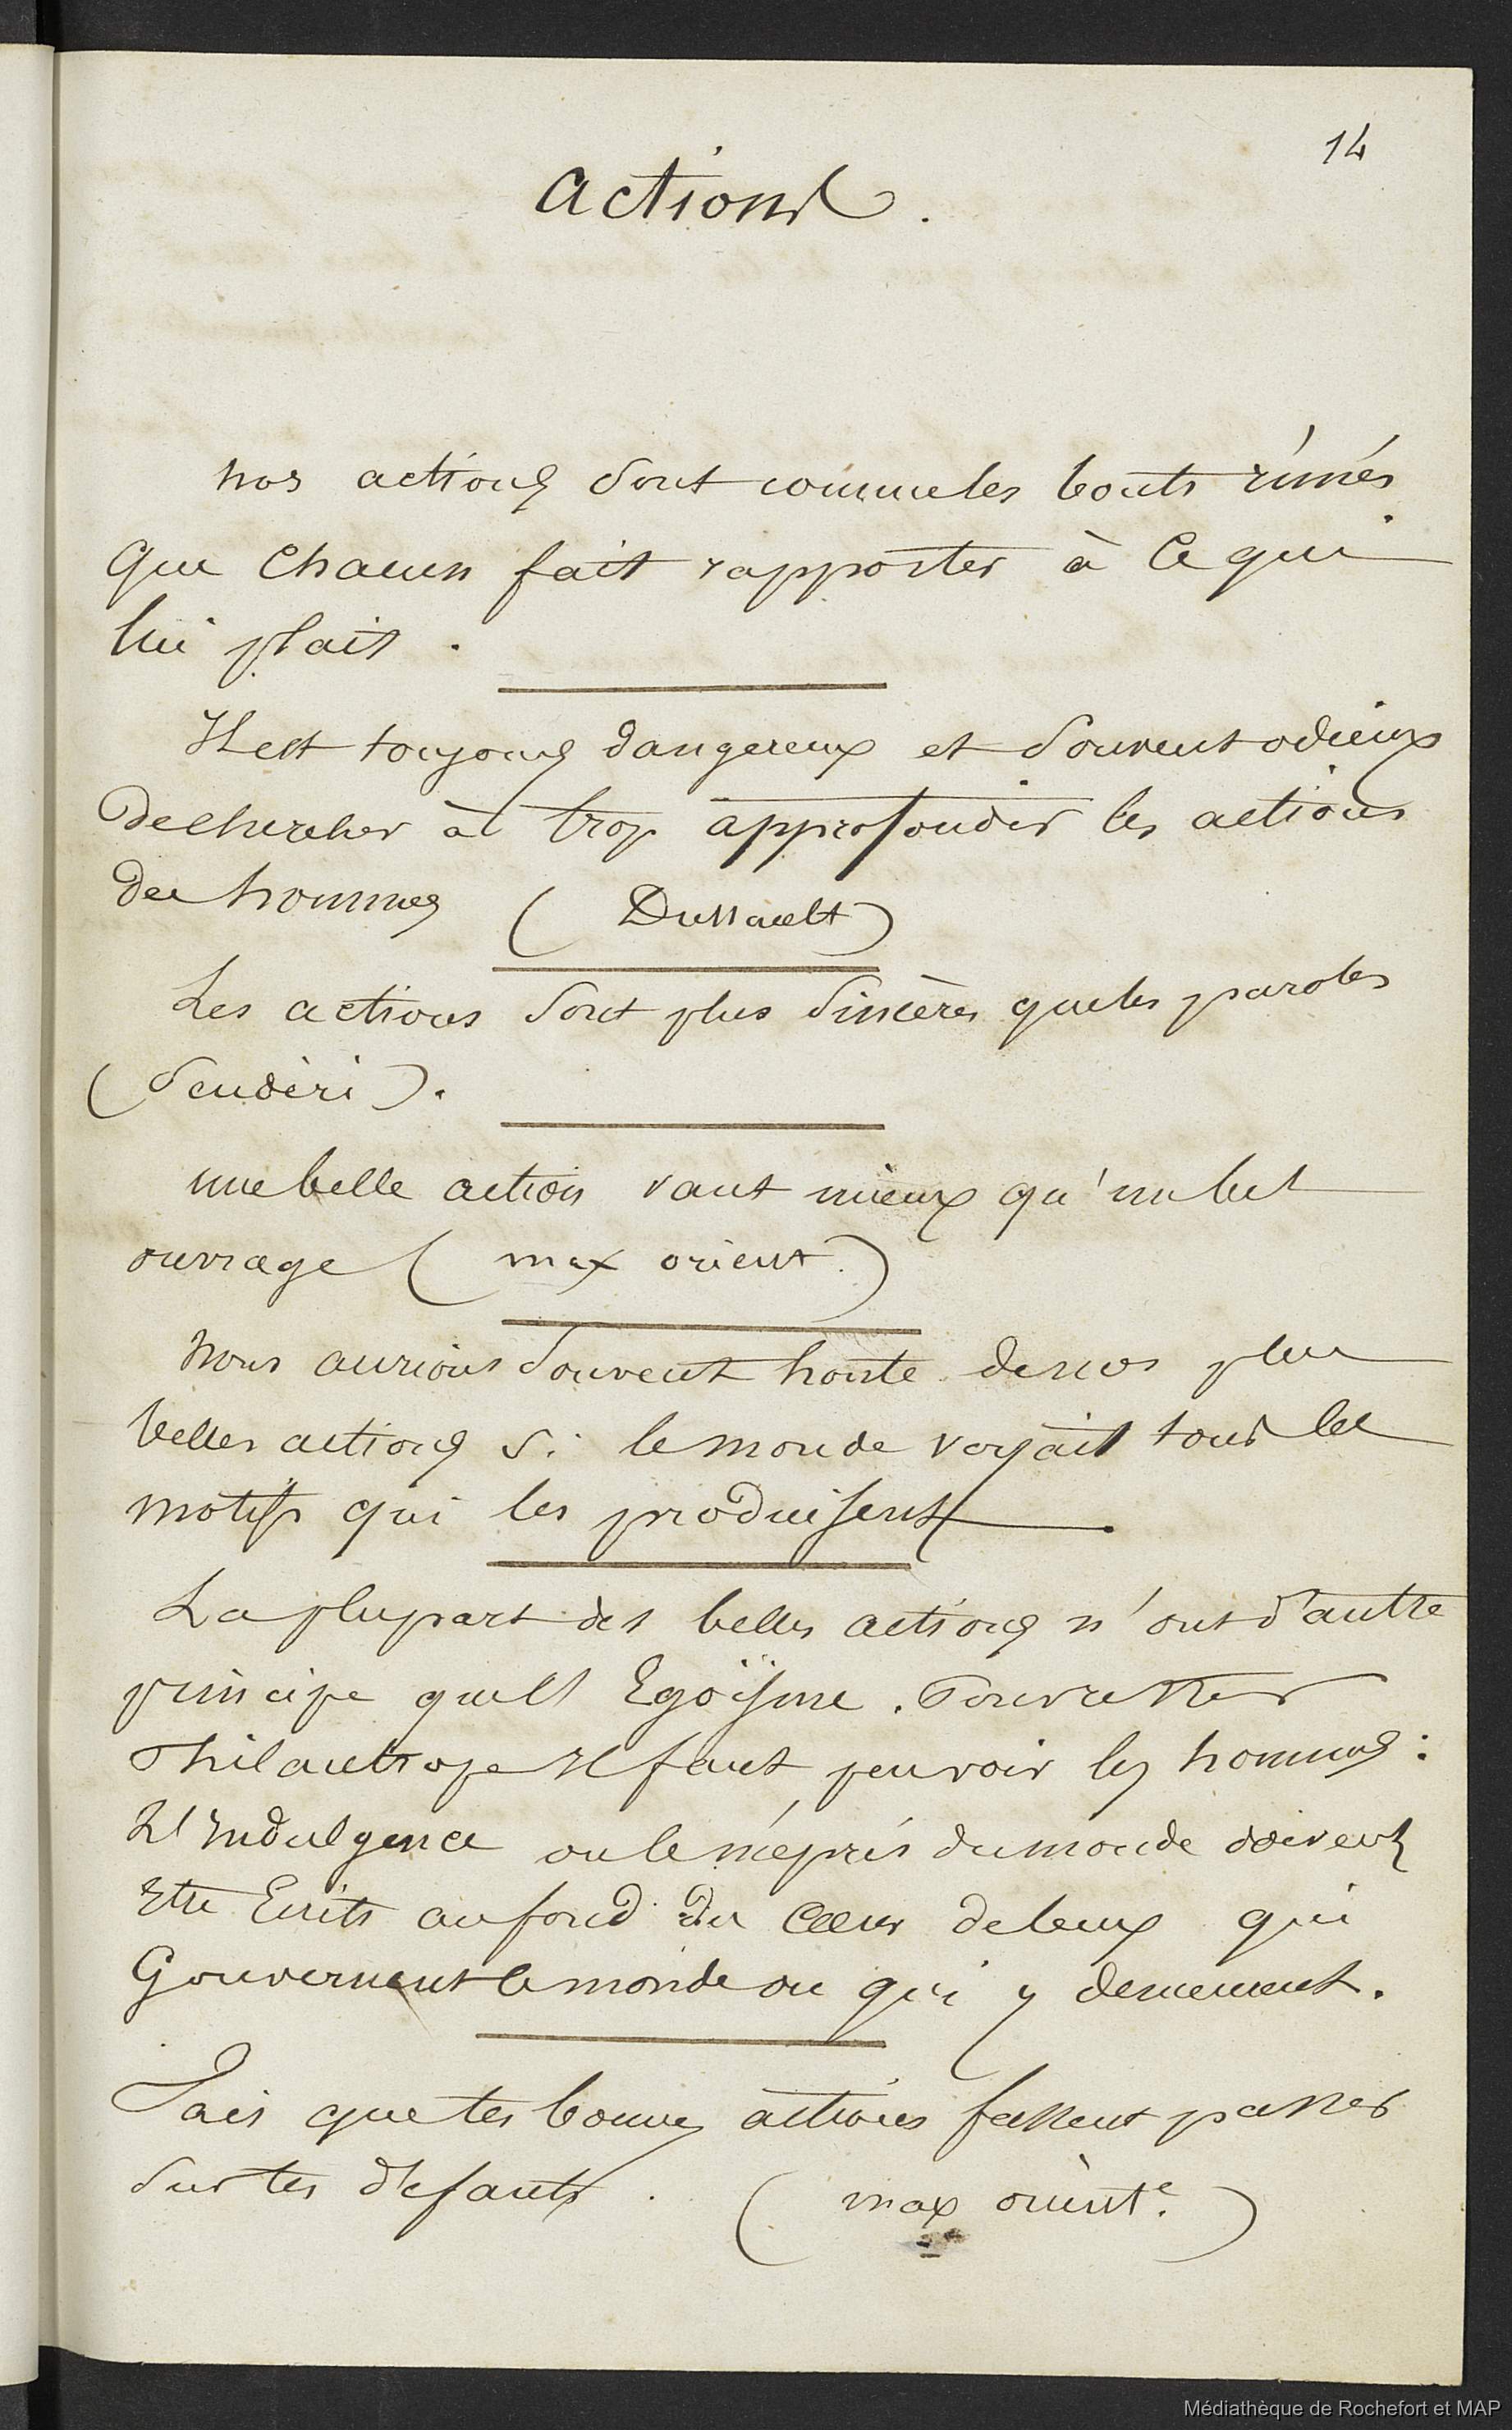 14
Actions.
nos actions sont comme les bouts rimés
que chacun fait rapporter à ce qui
lui plait.
Il est toujours dangereux et souvent odieux
de chercher à trop approfondir les actions
des hommes (Dussault)
Les actions sont plus sincères que les paroles
(Scudèri).
une belle action vaut mieux qu'un bel
ouvrage (max orient.)
nous aurions souvent honte de nos plus
belles actions si le monde voyait tous les
motifs qui les produisent.
La plupart des belles actions n'ont d'autre
principe que l'Egoïsme. Pour rester
Philantrope Il faut peu voir les hommes:
L'Indulgence ou le mépris du monde doivent
Etre Ecrits au fond du Coeur de ceux qui
Gouvernent le monde ou qui y demeurent.
Fais que tes bonnes actions fassent passer
sur tes défauts. (max orient.e)
Médiathèque de Rochefort et MAP